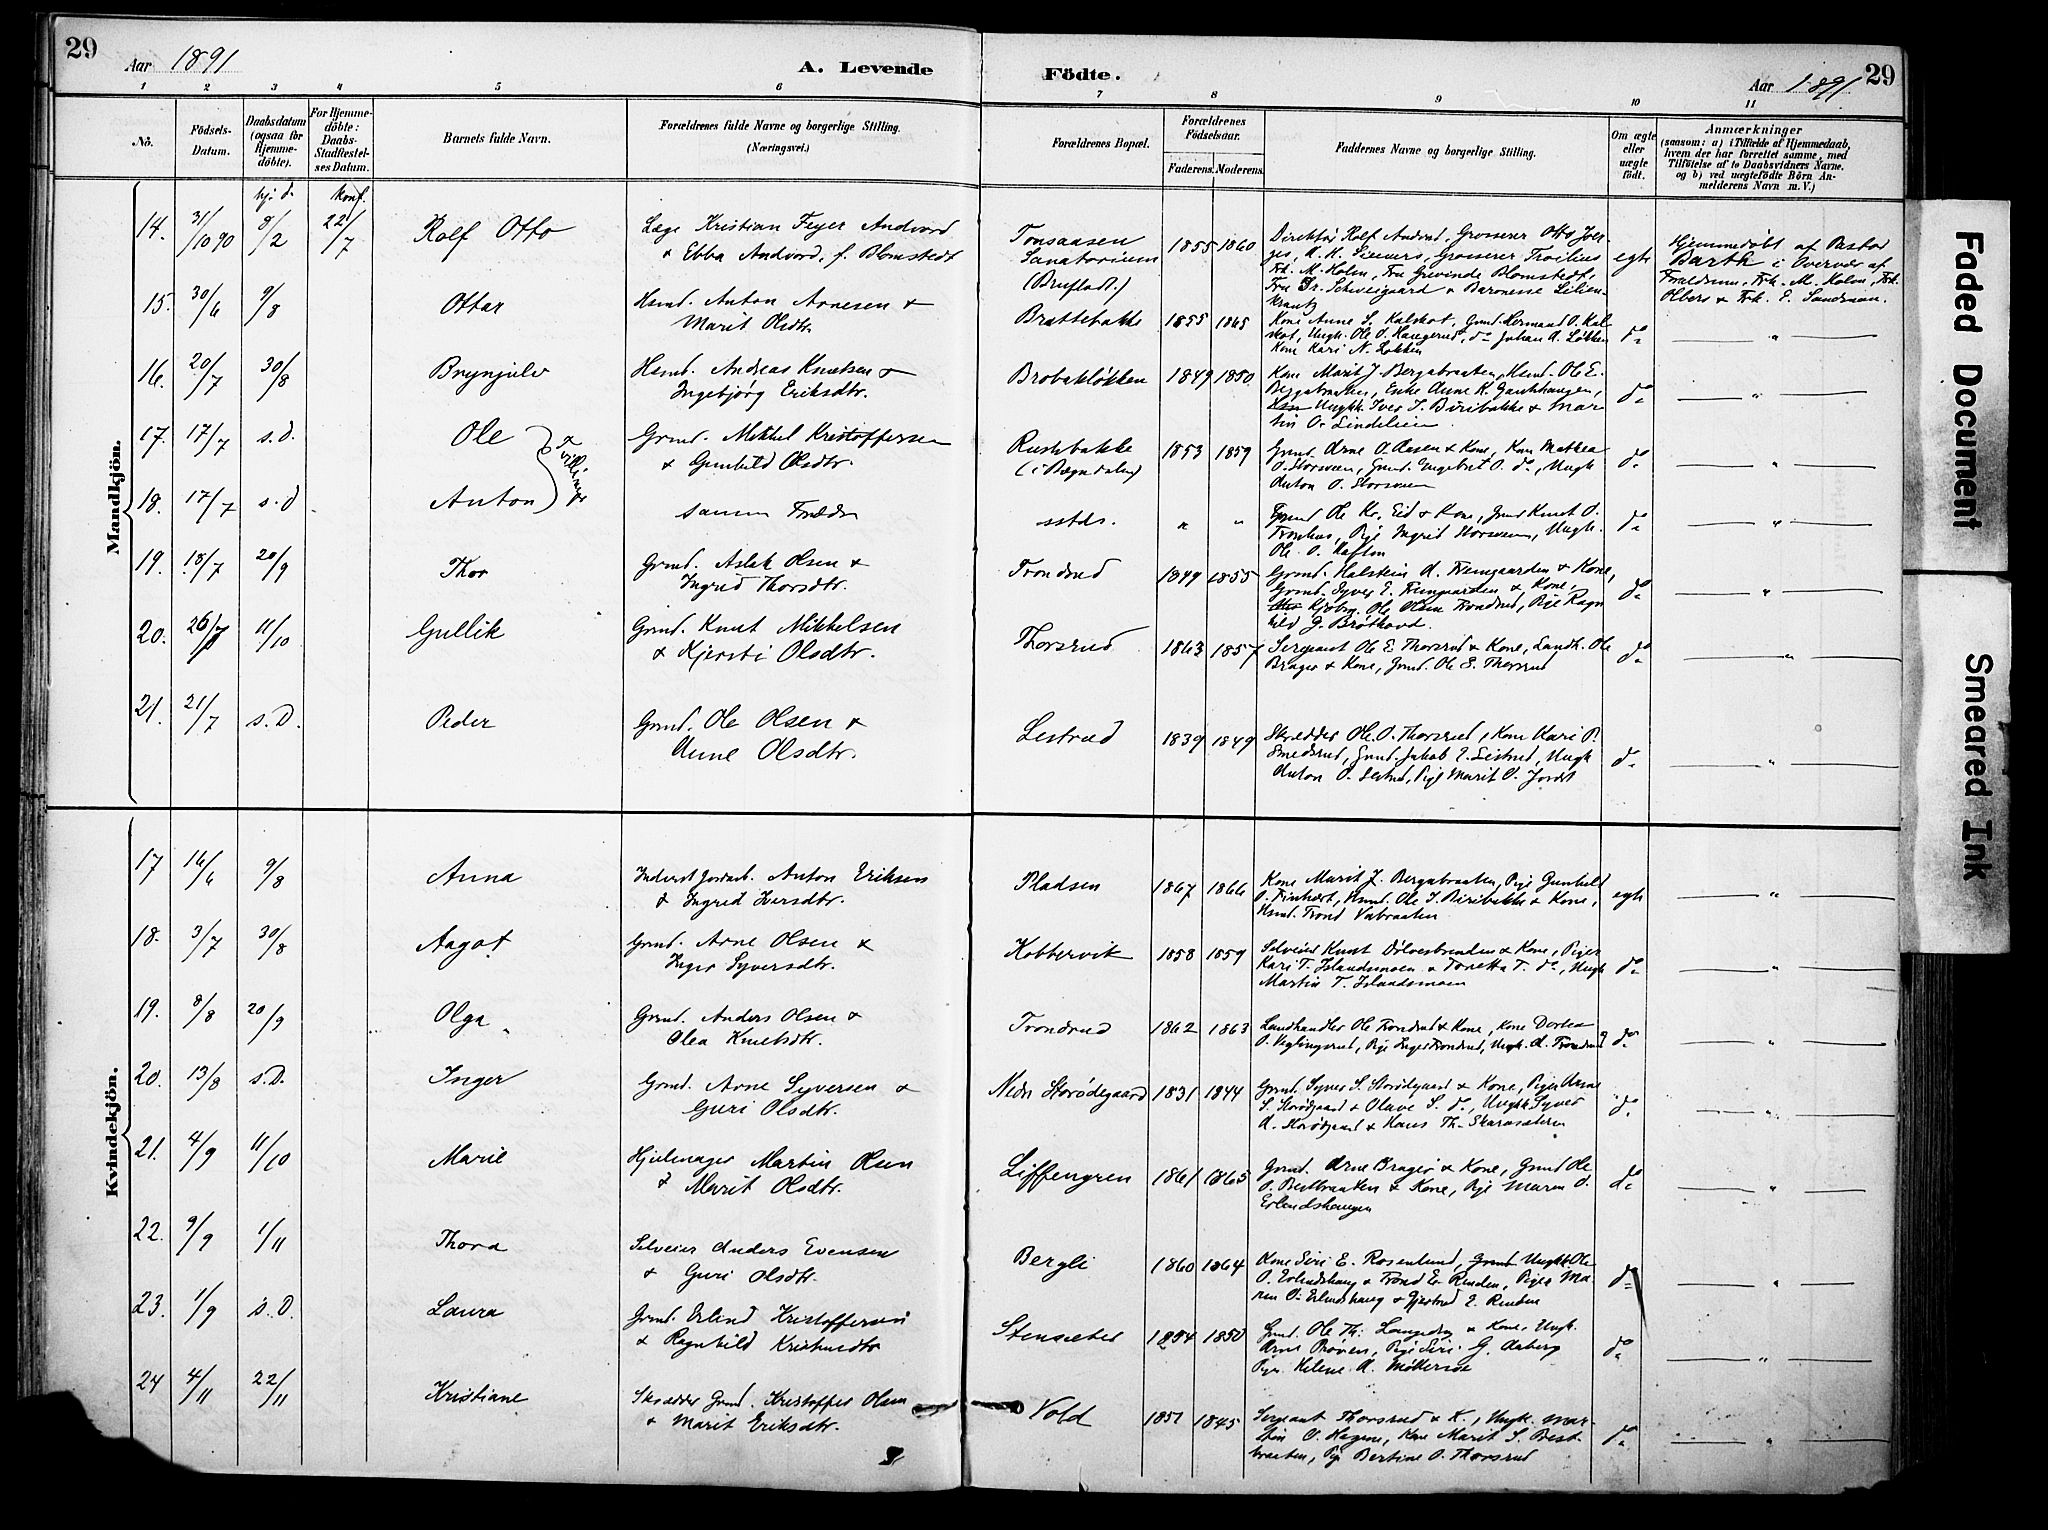 29
Aar 1891
A. Levende
Födte.
Aar 1891
29
1 2 3 4 5 6 7 8 9 10 11
No.
Födsels-Datum.
Daabsdatum (ogsaa for Hjemmedöbte).
For Hjemmedöbte: Daabs-Stadfæstelses Datum.
Barnets fulde Navn.
Forældrenes fulde Navne og borgerlige Stilling. (Næringsvei.)
Forældrenes Bopæl.
Forældrenes Födselsaar.
Faderens. Moderens.
Faddernes Navne og borgerlige Stilling.
Om ægte eller uægte født.
Anmærkninger
(saasom: a) i Tilfælde af Hjemmedaab, hvem der har forrettet samme, med Tilföielse af to Daabsvidners Navne, og b) ved uægtefödte Börn Anmelderens Navn m. V.)
Mandkjön.
hj. d. konf.
14. 31/10 90 8/2 22/7 Rolf Otto Læge Kristian Feyer Andvord
& Ebba Andvord, f. Blomstedt
Tonsaasen Sanatorium (Bruflat.) 1855 1860
Direktør Rolf Andvord, Grosserer Otto
Grosserer Troilius
Frk. M. Holm, Fru Grevinde Blomstedt,
Fru Dr. Schweigaard & Baronesse Lilienkrantz
egte
Hjemmedøbt af Pastor
Barth i Overvær af
Forældrene, Frk. M. Holm, Frk.
Olbers & Frk. E. Sandman.
15. 30/6 9/8 Ottar Hsmd. Anton Arnesen &
Marit Olsdtr.
Brattebakke 1855 1865
Kone Anne S. Kalskot, Grmd. Hermand O. Kalskot,
Ungk. Ole O. Haugerud, do Johan A. Løkken
Kone Kari N. Løkken
do "
16. 20/7 30/8 Brynjulv Hsmd. Andreas Knutsen &
Ingebjørg Eriksdtr.
Brobakløkken 1849 1850
Kone Marit J. Bergabraaten, Hsmd. Ole E.
Bergabraaten, Enke Anne K.
Ungk. Iver I. Biribakke & Martin O. Lindelien
do "
17. 17/7 s.d. Ole Tvillinger Grmd. Mikkel Kristoffersen
& Gunhild Olsdtr.
Rustebakke (i Bægndalen) 1853 1859
Grmd. Arne O. Aasen & Kone, Kone Mathea
O. Storsveen, Grmd. Engebret O. do, Ungk.
Anton O. Storsveen
do "
18. 17/7 s.d. Anton samme Forældre
sstds. " "
Grmd Ole Kr. Eid & Kone, Grmd Knut O.
Pige Ingrid Storsveen, Ungk.
Ole O.
do "
19. 18/7 20/9 Thor Grmd. Aslak Olsen &
Ingrid Thorsdtr.
Trondrud 1849 1855
Grmd. Halstein A. Fremgaarden & Kone,
Grmd. Syver E. Fremgaarden & Kone,
Ole Olsen Trondrud, Pige Ragnhild G. Brøthovd.
do "
20. 26/7 11/10 Gullik Grmd. Knut Mikkelsen
& Kjersti Olsdtr.
Thorsrud 1863 1857
Sergeant Ole E. Thorsrud & Kone, Landh. Ole
Brager & Kone, Grmd. Ole E. Thorsrud
do "
21. 21/7 s.D. Peder Grmd. Ole Olsen &
Anne Olsdtr.
Lestrud 1839 1849
Skrædder Ole O. Thorsrud, Kone Kari P.
Smedsrud, Grmd. Jakob E. Lestrud, Ungk
Anton O. Lestrud, Pige Marit O. Jordet
do "
Kvindekjön.
17 16/6 9/8 Anna Inderst Jordarb. Anton Eriksen
& Ingrid Iversdtr.
Pladsen 1867 1866
Kone Marit J. Bergabraaten, Pige Gunhild
O. Hsmd. Ole I. Biribakke & Kone,
Hsmd. Trond Vabraaten
egte "
18. 3/7 30/8 Aagot Grmd. Arne Olsen &
Inger Syversdtr.
Kobbervik 1858 1859
Selveier Knut Dølvesbrenden & Kone, Piger
Kari T. Islandsmoen & Tonetta T. do, Ungk
Martin T. Islandsmoen
do "
19. 8/8 20/9 Olga Grmd. Anders Olsen &
Olea Knutsdtr.
Trondrud 1862 1863
Landhandler Ole Trondrud & Kone, Kone Dortea
O. Veglingsrud, Pige Inger Trondrud, Ungk. A. Trondrud
do "
20. 13/8 s.D. Inger Grmd. Arne Syversen &
Guri Olsdtr.
Nedr Storødegaard 1831 1844
Grmd. Syver S. Storødgaard & Kone, Piger Anne
S. Storødgaard & Olave S. do, Ungk Syver
A. Storødgaard & Hans Th. Skarasæteren
do "
21. 4/9 11/10 Marie Hjulmager Martin Olsen
& Marit Olsdtr.
Liffengren 1861 1865
Grmd. Arne Brager & Kone, Grmd Ole
O. Bestbraaten & Kone, Pige Maren O.
Erlendshaugen
do "
22. 9/9 1/11 Thora Selveier Anders Evensen
& Guri Olsdtr.
Bergli 1860 1864
Kone Siri E. Rosenlund, Grmd Ungk Ole
O. Erlendshaug & Trond E. Renden, Piger Maren O. Erlendshaug & Gjertrud E. Renden
do "
23. 1/9 s.D. Laura Grmd. Erlend Kristoffersen
& Ragnhild Kristensdtr
Stensæter 1854 1850
Grmd. Ole Th. & Kone, Ungk.
Arne Prøven, Pige Siri G. Aaberg
Pige Helene A.
do "
24 4/11 22/11 Kristiane Skrædder Grmd. Kristoffer Olsen
& Marit Eriksdtr.
Vold 1851 1845
Sergeant Thorsrud & K., Ungk. Martin O. Hagene, Kone Marit S. Bestbraaten, Pige Bertine O. Thorsrud
do "
Faded Document
Smeared Ink